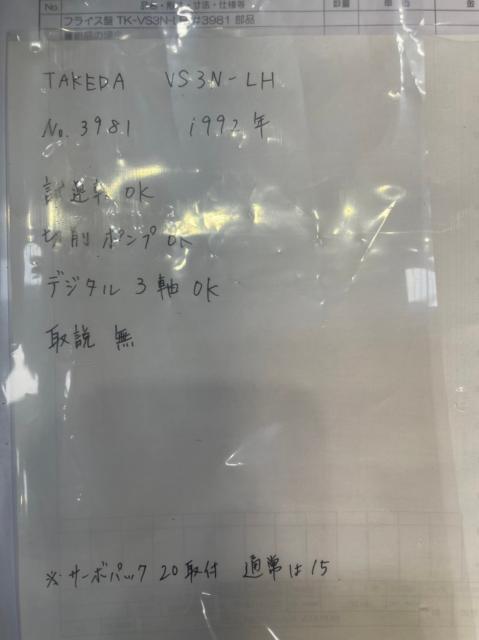 No 数量 単価 金
フライス盤 TK-VS3N-LH #3981 部品
TAKEDA VS3N-LH
No. 3981 1992年
試運転 OK
切削 ポンプ OK
デジタル 3軸 OK
取説 無
※サーボパック 20取付 通常は15